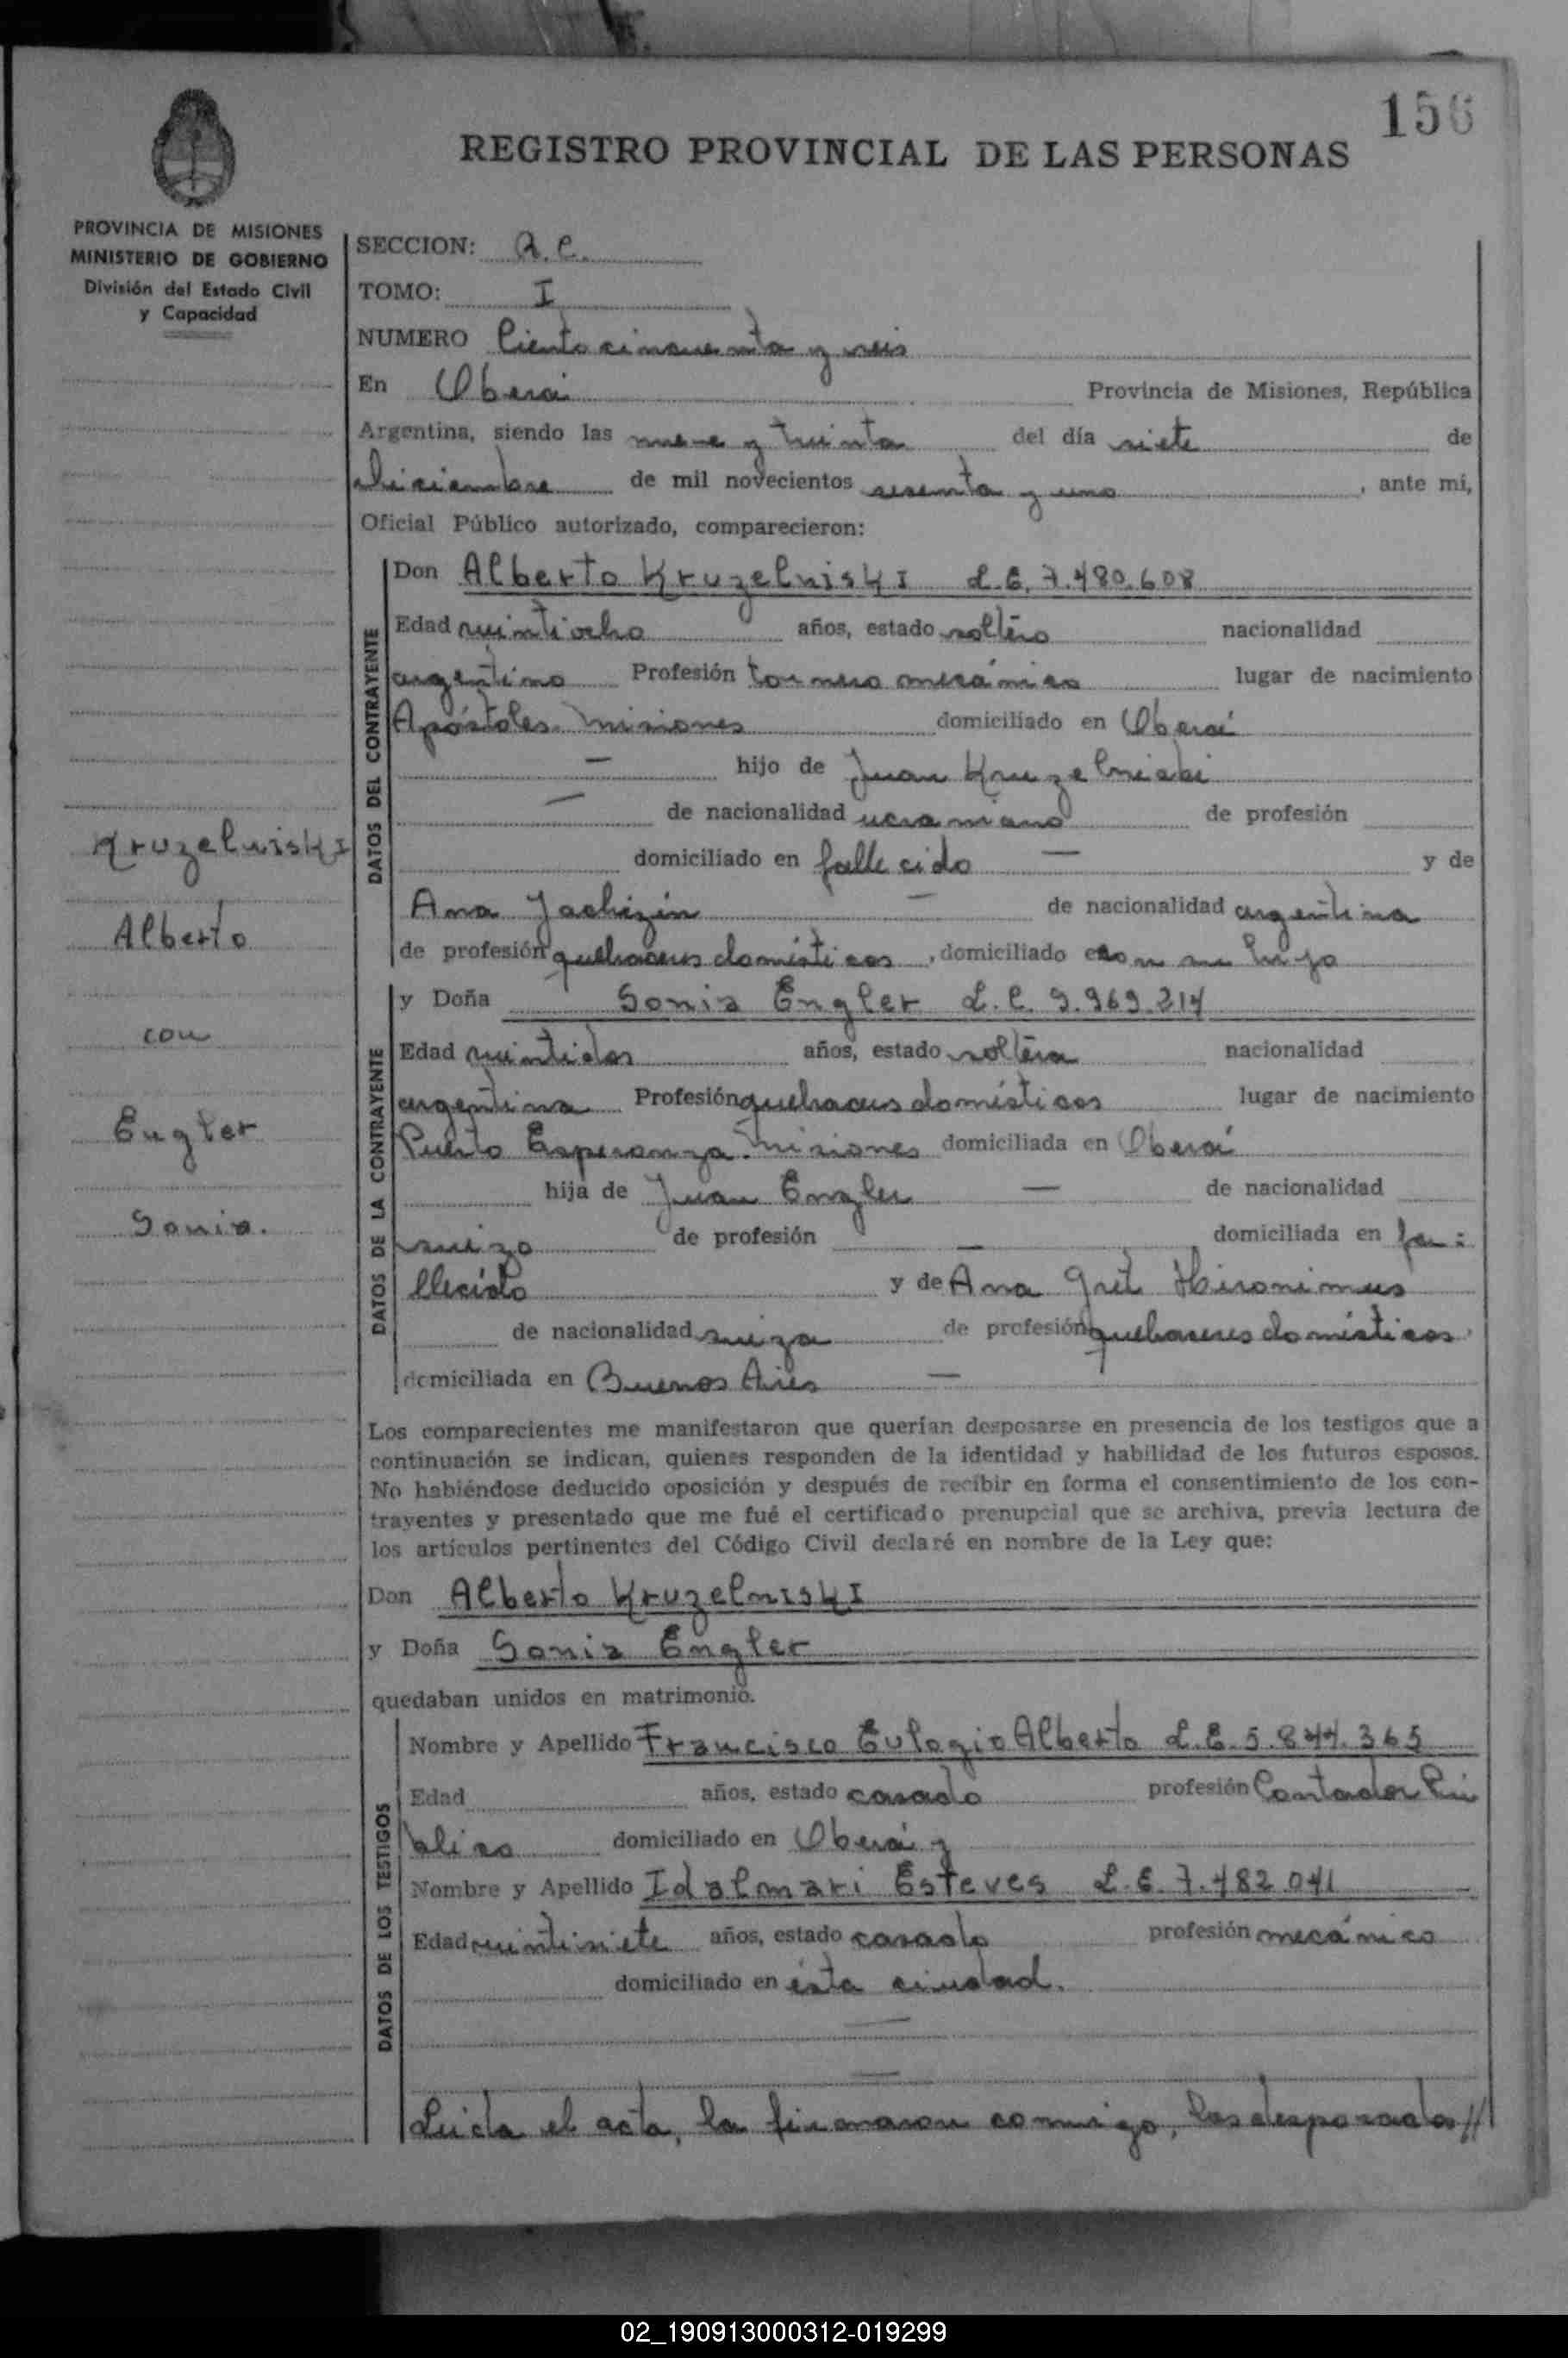 156
REGISTRO PROVINCIAL DE LAS PERSONAS
PROVINCIA DE MISIONES
MINISTERIO DE GOBIERNO
División del Estado Civil
y Capacidad
SECCION: R. C.
TOMO: I
NUMERO Ciento cincuenta y seis
En Oberá Provincia de Misiones, República
Argentina, siendo las nueve y treinta del día siete de
diciembre de mil novecientos sesenta y uno, ante mi,
Oficial Público autorizado, comparecieron:
DATOS DEL CONTRAYENTE
Don Alberto KruzelnisKI L.E. 7.480.608
Edad veintiocho años, estado soltero nacionalidad
argentino Profesión tornero mecánico lugar de nacimiento
Apóstoles Misiones domiciliado en Oberá
— hijo de Juan Kruzelniski
— de nacionalidad ucraniano de profesión
domiciliado en fallecido — y de
Ana — de nacionalidad argentina
de profesión quehaceres domésticos, domiciliado con su hijo
Kruzelniski
Alberto
con
Engler
Sonia.
DATOS DE LA CONTRAYENTE
y Doña Sonia Engler L.C. 9.969.214
Edad veintidos años, estado soltera nacionalidad
argentina Profesión quehaceres domésticos lugar de nacimiento
Puerto Esperanza. Misiones domiciliada en Oberá
hija de Juan Engler — de nacionalidad
suizo de profesión — domiciliada en fa:
llecido y de Ana Gret Hironimus
de nacionalidad suiza de profesión quehaceres domésticos.
domiciliada en Buenos Aires —
Los comparecientes me manifestaron que querían desposarse en presencia de los testigos que a
continuación se indican, quienes responden de la identidad y habilidad de los futuros esposos.
No habiéndose deducido oposición y después de recibir en forma el consentimiento de los con-
trayentes y presentado que me fué el certificado prenupcial que se archiva, previa lectura de
los artículos pertinentes del Código Civil declaré en nombre de la Ley que:
Don Alberto KruzelnisKI
y Doña Sonia Engler
quedaban unidos en matrimonio.
DATOS DE LOS TESTIGOS
Nombre y Apellido Francisco Eulogio Alberto L.E. 5.844.365
Edad años, estado casado profesión Contador Pú
blico domiciliado en Oberá y
Nombre y Apellido Idalmari Esteves L.E. 7.482.041
Edad veintisiete años, estado casado profesión mecánico
domiciliado en ésta ciudad.
—
—
Leída el acta, la firmaron conmigo, los desposados//
02_190913000312-019299